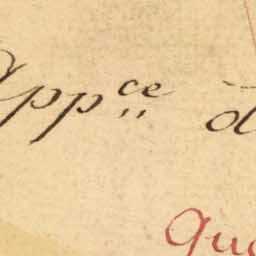 App.ce d
Qu